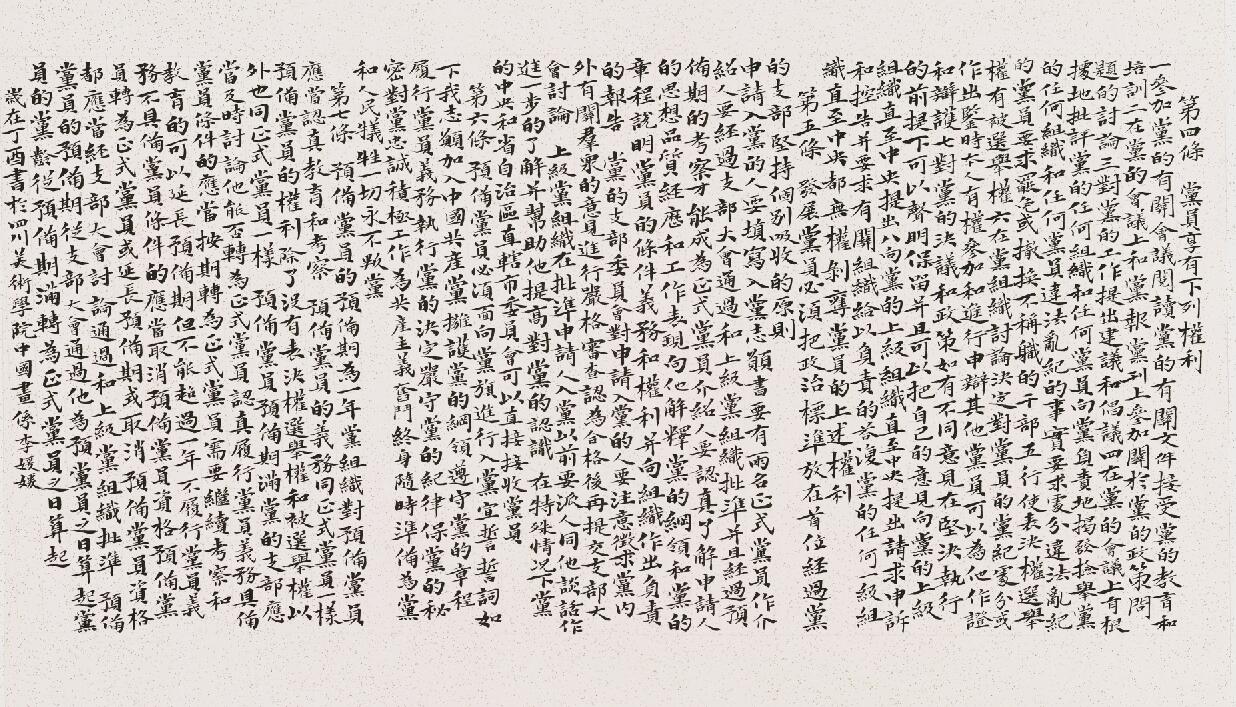 第四條 黨員享有下列權利
一參加黨的有關會議閱讀黨的有關文件接受黨的教育和
培訓二在黨的會議上和黨報黨刊上參加關於黨的政策問
題的討論三對黨的工作提出建議和倡議四在黨的會議上有根
據地批評黨的任何組織和任何黨員向黨負責地揭發檢舉黨
的任何組織和任何黨員違法亂紀的事實要求處分違法亂紀
的黨員要求罷免或撤換不稱職的干部五行使表決權選舉
權有被選舉權六在黨組織討論決定對黨員的黨紀處分或
作出鑒時本人有權參加和進行申辯其他黨員可以為他作證
和辯護七對黨的決議和政策如有不同意見在堅決執行
的前提下可以聲明保留并且可以把自己的意見向黨的上級
組織直至中央提出八向黨的上級組織直至中央提出請求申訴
和控告并要求有關組織給以負責的答復黨的任何一級組
織直至中央都無權剝奪黨員的上述權利
第五條 發展黨員必須把政治標準放在首位經過黨
的支部堅持個別吸收的原則
申請入黨的人要填寫入黨志願書要有兩名正式黨員作介
紹人要經過支部大會通過和上級黨組織批準并且經過預
備期的考察才能成為正式黨員介紹人要認真了解申請人
的思想品質經歷和工作表現向他解釋黨的綱領和黨的
章程說明黨員的條件義務和權利并向組織作出負責
的報告 黨的支部委員會對申請入黨的人要注意徵求黨內
外有關羣眾的意見進行嚴格審查認為合格後再提交支部大
會討論 上級黨組織在批準申請人入黨以前要派人同他談話作
進一步的了解并幫助他提高對黨的認識 在特殊情況下黨
的中央和省自治區直轄市委員會可以直接接收黨員
第六條 預備黨員必須面向黨旗進行入黨宣誓誓詞如
下我志願加入中國共產黨擁護黨的綱領遵守黨的章程
履行黨員義務執行黨的決定嚴守黨的紀律保黨的秘
密對黨忠誠積極工作為共產主義奮鬥終身隨時準備為黨
和人民犧牲一切永不叛黨
第七條 預備黨員的預備期為一年黨組織對預備黨員
應當認真教育和考察 預備黨員的義務同正式黨員一樣
預備黨員的權利除了沒有表決權選舉權和被選舉權以
外也同正式黨員一樣 預備黨員預備期滿黨的支部應
當及時討論他能否轉為正式黨員認真履行黨員義務具備
黨員條件的應當按期轉為正式黨員需要繼續考察和
教育的可以延長預備期但不能超過一年不履行黨員義
務不具備黨員條件的應當取消預備黨員資格預備黨
員轉為正式黨員或延長預備期或取消預備黨員資格
都應當經支部大會討論通過和上級黨組織批準 預備
黨員的預備期從支部大會通過他為預黨員之日算起黨
員的黨齡從預備期滿轉為正式黨員之日算起
歲在丁酉書於四川美術學院中國畫係李媛媛